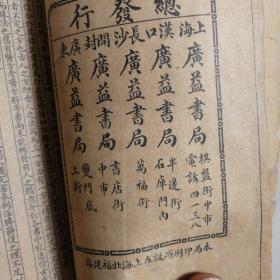 總發行
上海廣益書局 棋盤街中市 電話四一三八
漢口廣益書局 半邊街石庫門內
長沙廣益書局 萬福街
開封廣益書局 書店街中市
廣東廣益書局 雙門底上街
本局印刷所設在上海北福建路